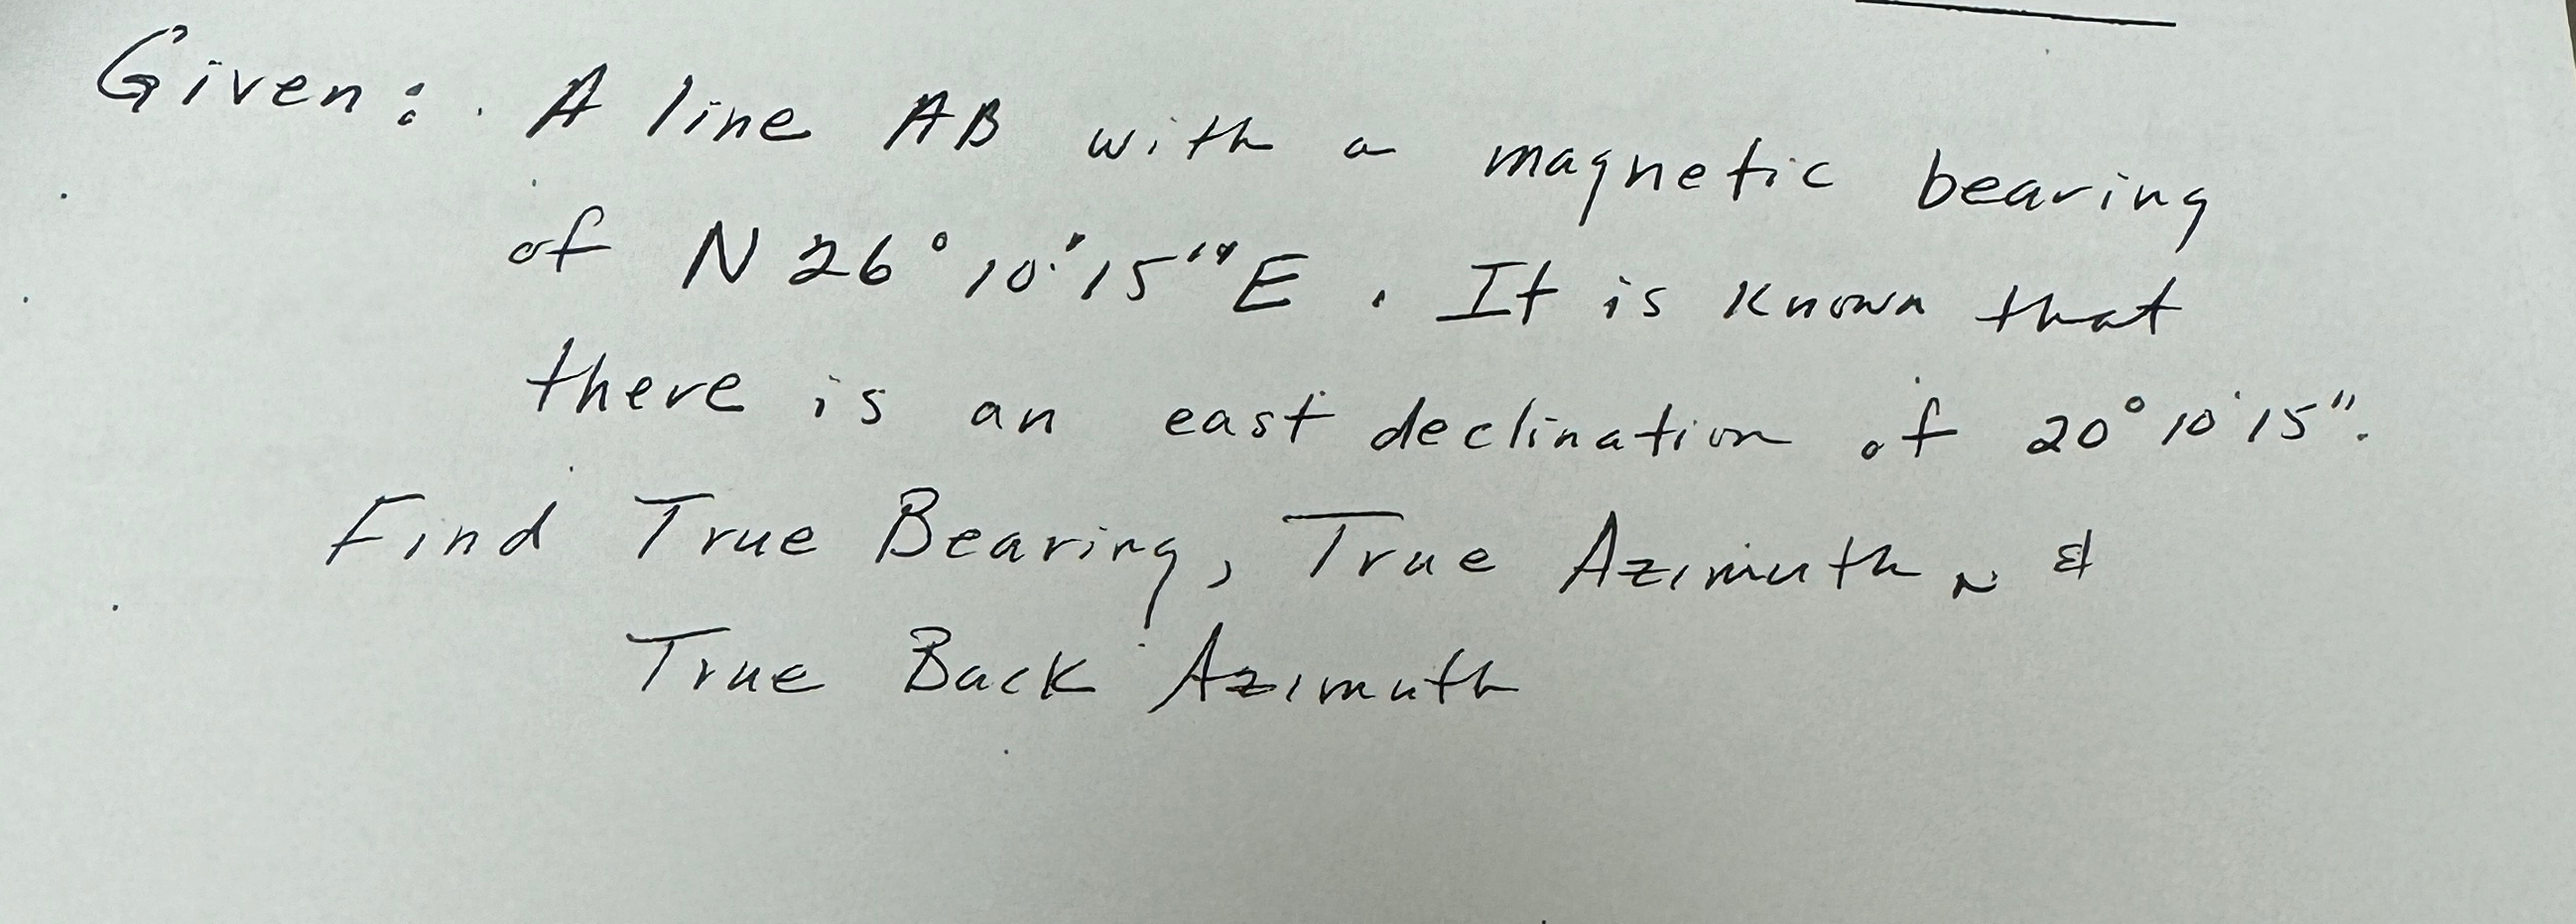 Given: A line AB with a magnetic bearing
of N 26° 10' 15" E. It is known that
there is an east declination of 20° 10' 15".
Find True Bearing, True Azimuth N &
True Back Azimuth